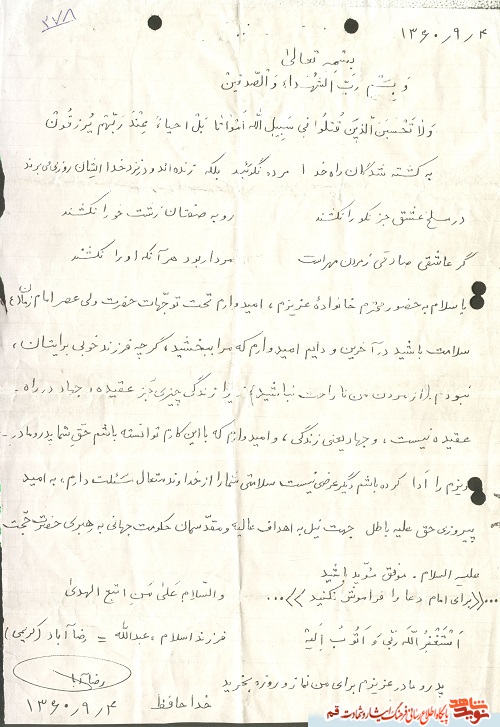 ۳۷۸
۱۳۶۰/۹/۴
بسمه تعالی
وَ بِسْمِ رَبِّ الشُّهَداءِ وَالْصِّدِّقین
وَلا تَحْسَبَنَّ الَّذینَ قُتِلُوا فی سَبیلِ اللهِ اَمْواتا بَلْ اَحیاءٌ عِنْدَ رَبِّهِمْ یُرزَقُونْ
به کشته شدگان راه خدا مرده نگوئید بلکه زنده اند و در نزد خدا ایشان روزی می برند
در مسلخ عشق جز نکو را نکشند روبه صفتان زشت خو را نکشند
گر عاشقی صادقی ز مردن مهراست مردار بود هر آنکه او را نکشند
با سلام به حضور محترم خانوادهٔ عزیزم، امیدوارم تحت توجّهات حضرت ولی عصر امام زمان (ع)
سلامت باشید در آخرین و دایم امیدوارم که مرا ببخشید، گرچه فرزند خوبی برایتان،
نبودم. (از مردن من ناراحت نباشید) زیرا زندگی چیزی جز عقیده، جهاد در راه
عقیده نیست، و جهاد یعنی زندگی، و امیدوارم که با این کارم توانسته باشم حق شما پدر و مادر
عزیزم را اَدا کرده باشم دیگر عرضی نیست سلامتی شما را از خداوند متعال مسئلت دارم، به امید
پیروزی حق علیه باطل جهت نیل به اهداف عالیه و مقدّسمان حکومت جهانی به رهبری حضرت حجت
علیه السلام. موفق مؤید باشید
...《برای امام دعا را فراموش نکنید》... والسّلام عَلیٰ مَنِ اتبع الهدیٰ
اَسْتَغْفِرُ اللّهَ رَبّی وَ اَتُوبُ اِلَیْهْ فرزند اسلام، عبدالله = رضا آباد (کریمی)
پدر و مادر عزیزم برای من نماز و روزه بخرید
خدا حافظ
۱۳۶۰/۹/۴
نوید شاهد
پایگاه اطلاع رسانی فرهنگ ایثار و شهادت قم